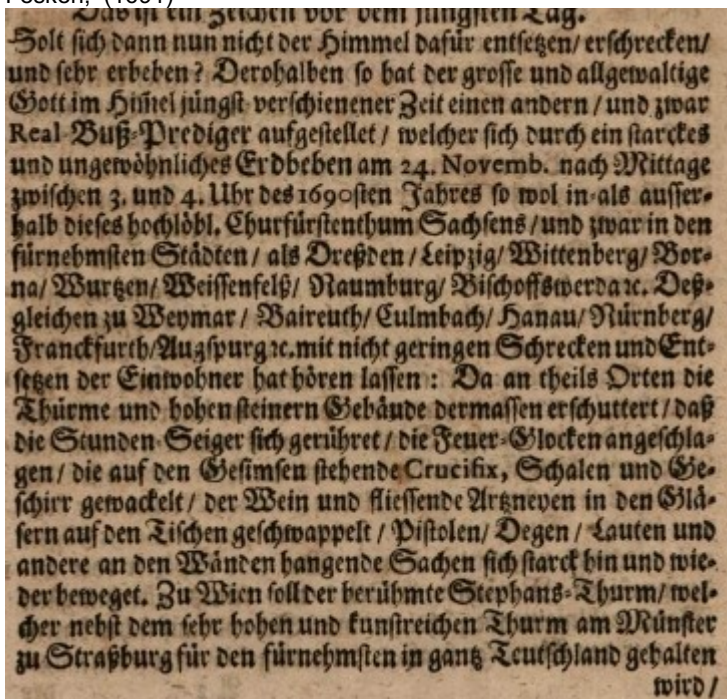 (1691)
Das ist ein Zeichen vor dem jüngsten Tag.
Solt sich dann nun nicht der Himmel dafür entsetzen/ erschrecken/
und sehr erbeben? Derohalben so hat der grosse und allgewaltige
Gott im Him̄el jüngst verschienener Zeit einen andern / und zwar
Real-Buß-Prediger aufgestellet / welcher sich durch ein starckes
und ungewöhnliches Erdbeben am 24. Novemb. nach Mittage
zwischen 3. und 4. Uhr des 1690sten Jahres so wol in- als ausser-
halb dieses hochlöbl. Churfürstenthum Sachsens / und zwar in den
fürnehmsten Städten / als Dreßden / Leipzig/ Wittenberg/ Bor-
na/ Wurtzen/ Weissenfelß/ Naumburg/ Bischoffswerda ꝛc. Deß-
gleichen zu Weymar / Baireuth/ Culmbach/ Hanau/ Nürnberg/
Franckfurth/ Augspurg ꝛc. mit nicht geringen Schrecken und Ent-
setzen der Einwohner hat hören lassen : Da an theils Orten die
Thürme und hohen steinern Gebäude dermassen erschuttert / daß
die Stunden-Seiger sich gerühret / die Feuer-Glocken angeschla-
gen / die auf den Gesimsen stehende Crucifix, Schalen und Ge-
schirr gewackelt / der Wein und fliessende Artzneyen in den Glä-
sern auf den Tischen geschwappelt / Pistolen/ Degen / Lauten und
andere an den Wänden hangende Sachen sich starck hin und wie-
der beweget. Zu Wien soll der berühmte Stephans-Thurm/ wel-
cher nebst dem sehr hohen und kunstreichen Thurm am Münster
zu Straßburg für den fürnehmsten in gantz Teutschland gehalten
wird /